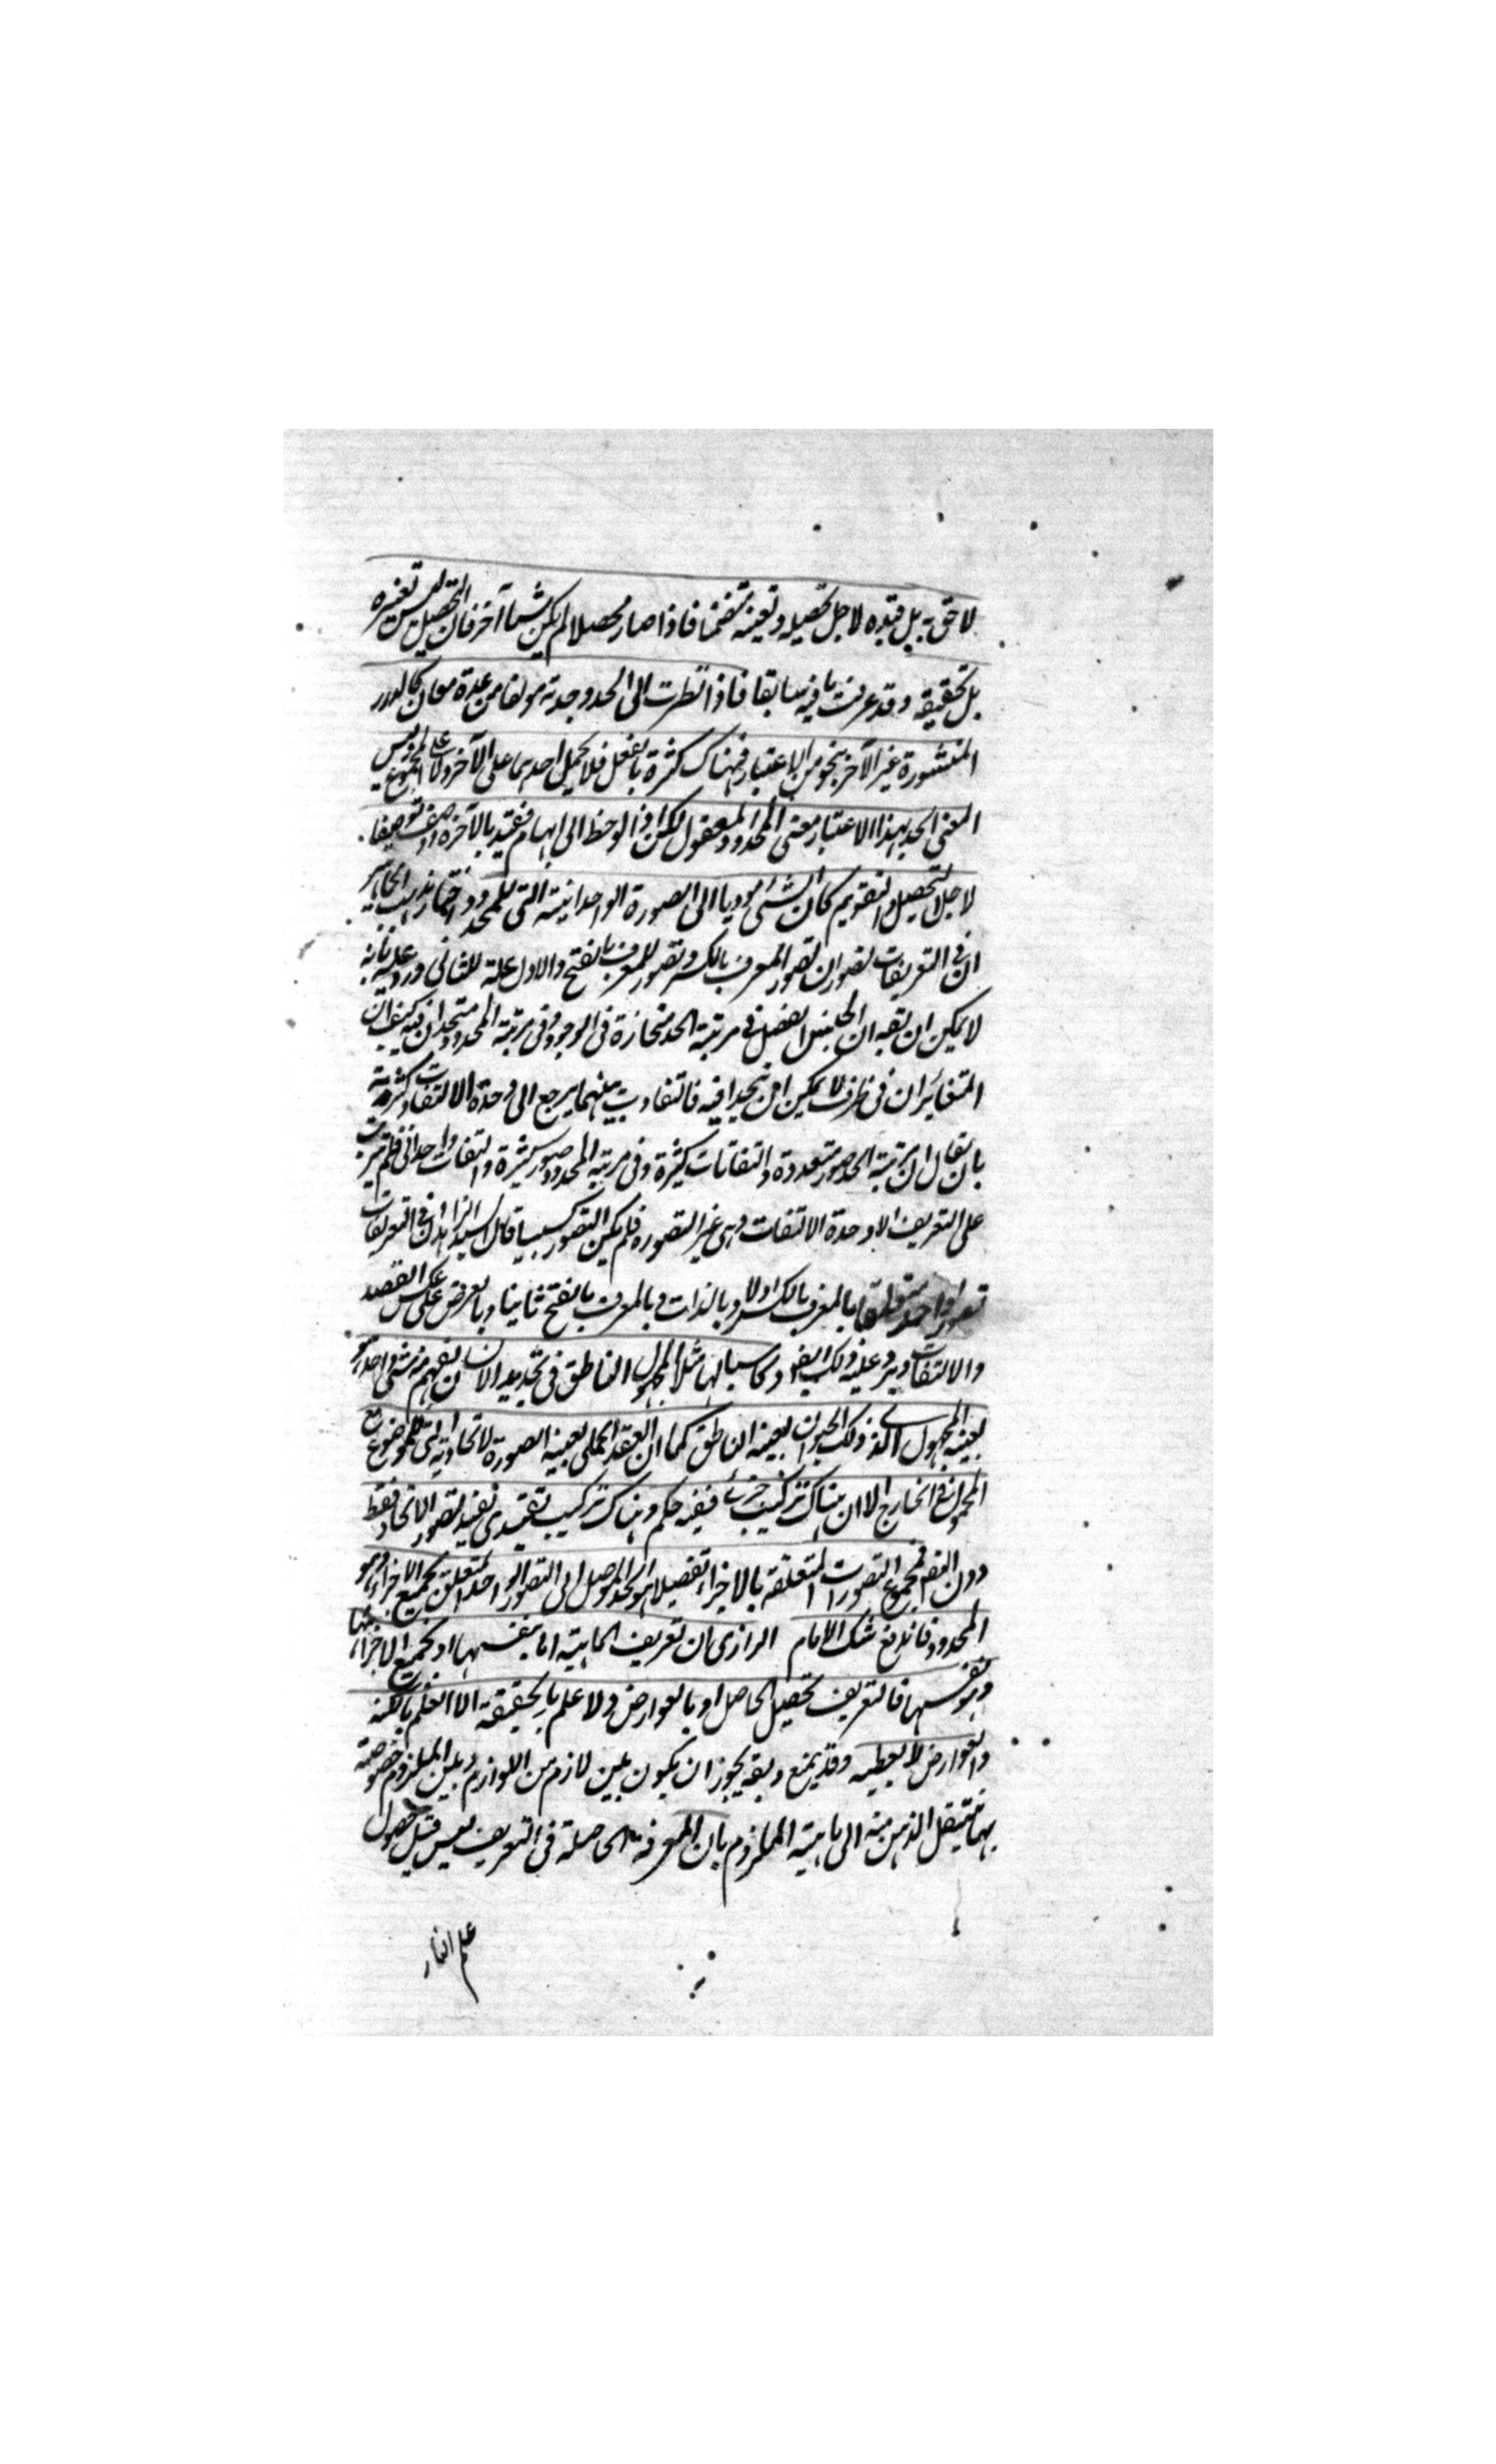 لاحق به بل قيده لاجل تحصيله وتعينه متضمنا فاذا صار محصلا لم يكن شيئا آخر فان التحصيل ليس تغيره
بل تحقيقه وقد عرفت ما فيه سابقا فاذا نظرت الى الحد وجدته مولفا من عدة معان كالدرر
المنشورة غير الآخر بنحو من الاعتبار فهناك كثرة بالفعل فلا يحمل احدهما على الآخر ولا على المجموع وليس
المعنى الحد بهذا الاعتبار معنى المحدود المعقول لكن اذا لوحظ الى ابهام فقيد بالآخر توصيفا
لاجل التحصيل والتقويم كان الشئ موديا الى الصورة الوحدانية التي للمحدود
ان في التعريفات تصوران تصور المعرف بالكسر وتصور للمعرف بالفتح والاول علة للثاني ورد عليه بانه
لا يمكن ان يقه ان الجنس والفصل في مرتبة الحد منحازة في الوجود وفي مرتبة المحدود متحدان فيه كيف ان
المتغائران في ظرف لا يمكن ان يتحدا فيه فالتفاوت بينهما يرجع الى وحدة الالتفات وكثرته
بان يقال ان مرتبة الحد صور متعددة والتفاتات كثيرة وفي مرتبة المحدود صور كثيرة والتفات واحداني فلم يترتب
على التعريف الا وحدة الالتفات وهي غير التصور فلم يكن التصور كسبيا قال السيد الزاهد ان في التعريفات
تصورا واحدا متعلقا بالمعرف بالكسر اولا وبالذات وبالمعرف بالفتح ثانيا وبالعرض على عكس القصد
والالتفات ويرد عليه ذلك ايضا مثلا الحيوان الناطق في تحديد الانسان يفهم منه شئ واحد هو
بعينه الحيوان الذي ذلك الحيوان بعينه الناطق كما ان العقد الحملي يعينه الصورة الاتحادية التي للموضوع مع
المحمول في الخارج الا ان هناك تركيب خبري ففيه حكم وهناك تركيب تقييدي يفيد تصور الاتحاد فقط
دون فمجموع التصورات المتعلقة بالاجزاء تفصيلا هو الحد الموصل الى التصور الواحد المتعلق بجميع الاجزاء وهو
المحدود فاندفع شك الامام الرازي بان تعريف الماهية اما بنفسها او بجميع الاجزاء
وهو نفسها فالتعريف تحصيل الحاصل او بالعوارض ولا علم بالحقيقة الا العلم بالكنه
والعوارض لا يعطيه وقد يمنع ويقه يجوز ان يكون بين لازم من اللوازم وبين الملزوم خصوصية
بها ينتقل الذهن منه الى ماهية الملزوم بان المعرفة الحاصلة في التعريف ليس قبل حصول
علم